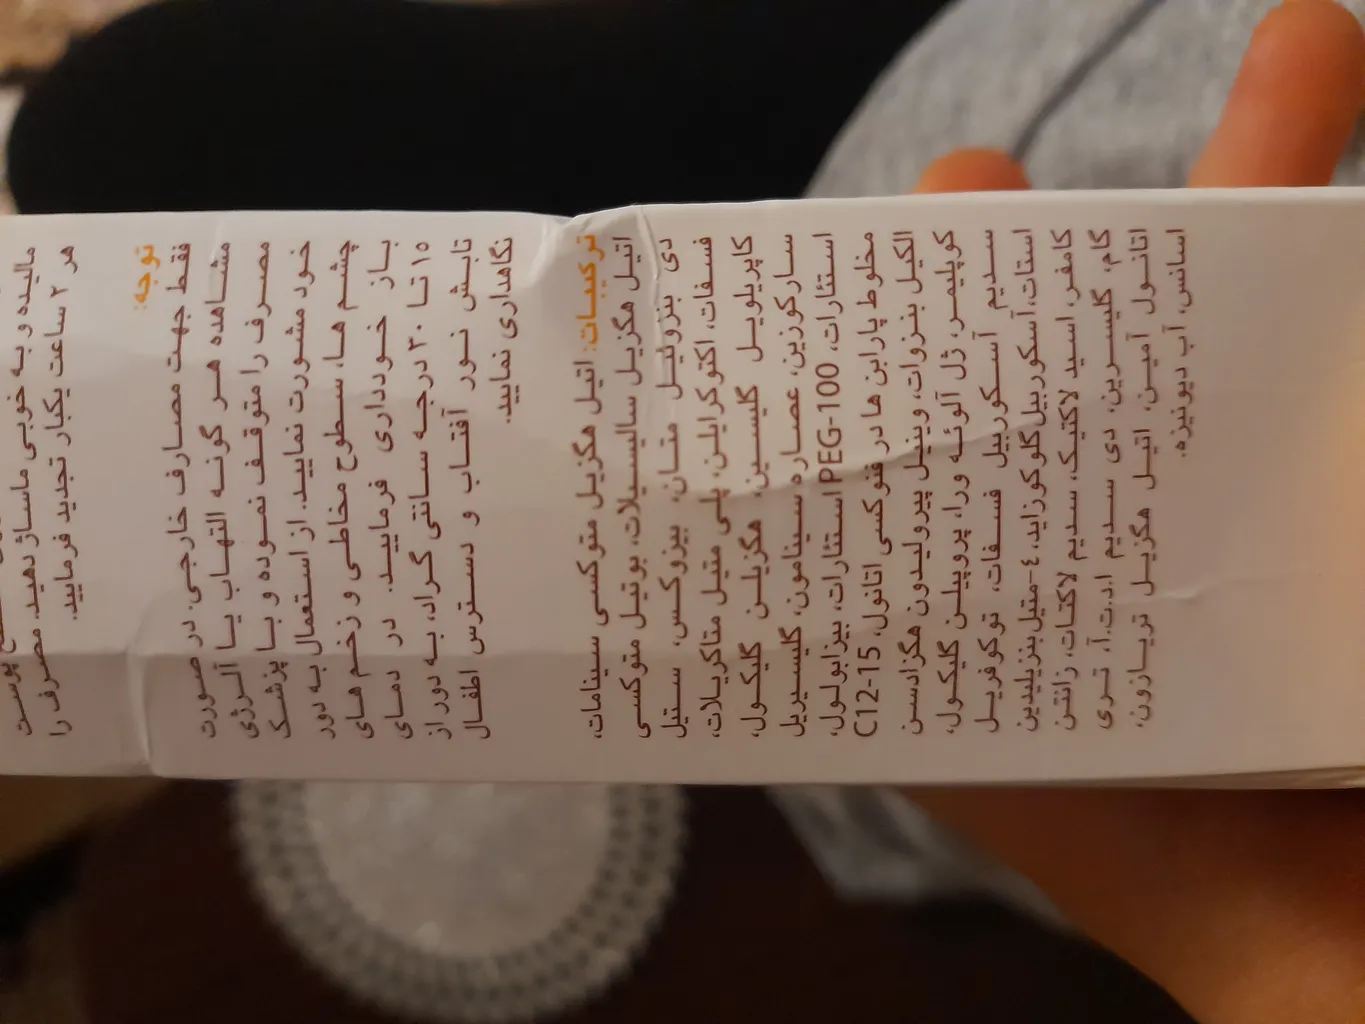 پوست
مالیده و به خوبی ماساژ دهید. مصرف را
هر ۲ ساعت یکبار تجدید فرمایید.
توجه:
فقط جهت مصارف خارجی. در صورت
مشاهده هر گونه التهاب یا آلرژی
مصرف را متوقف نموده و با پزشک
خود مشورت نمایید. از استعمال به دور
چشم ها، سطوح مخاطی و زخم های
باز خودداری فرمایید. در دمای
۱۵ تا ۳۰ درجه سانتی گراد، به دور از
تابش نور آفتاب و دسترس اطفال
نگاهداری نمایید.
ترکیبات: اتیل هگزیل متوکسی سینامات،
اتیل هگزیل سالیسیلات، بوتیل متوکسی
دی بنزوئیل متان، بیزوکس، ستیل
فسفات، اکتوکرایلن، پلی متیل متاکریلات،
کاپریلویل گلیسین، هگزیلن گلیکول،
سارکوزین، عصاره سینامون، گلیسیریل
استئارات، PEG-100 استئارات، بیزابولول،
مخلوط پارابن ها در فنوکسی اتانول، C12-15
الکیل بنزوات، وینیل پیرولیدون هگزادسن
کوپلیمر، ژل آلوئه ورا، پروپیلن گلیکول،
سدیم آسکوربیل فسفات، توکوفریل
استات، آسکوربیل گلوکوزاید، ٤-متیل بنزیلیدین
کامفر، اسید لاکتیک، سدیم لاکتات، زانتن
گام، گلیسرین، دی سدیم ا.د.ت.آ، تری
اتانول آمین، اتیل هگزیل تریازون،
اسانس، آب دیونیزه.